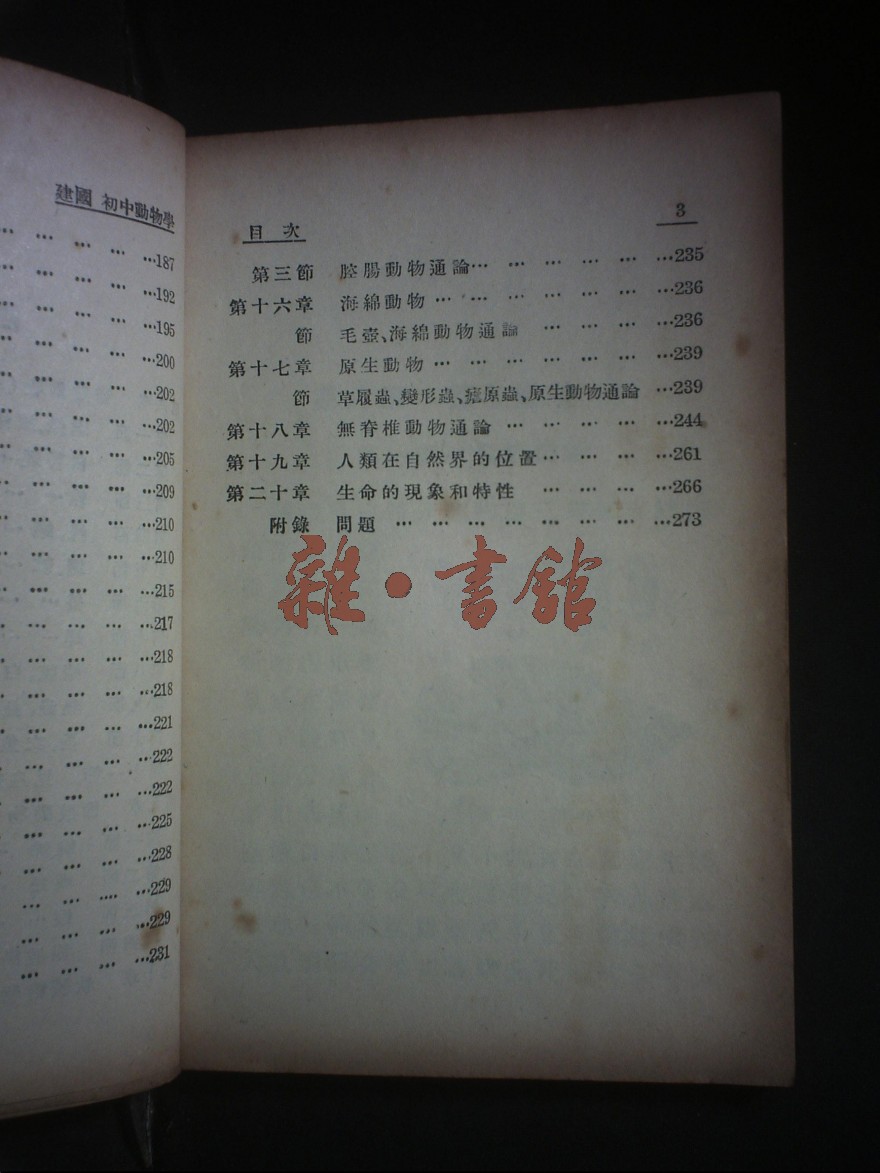 建國 初中動物學
… … … …187
… … … …192
… … … …195
… … … …200
… … … …202
… … … …202
… … … …205
… … … …209
… … … …210
… … … …210
… … … …215
… … … …217
… … … …218
… … … …218
… … … …221
… … … …222
… … … …222
… … … …225
… … … …228
… … … …229
… … … …229
… … … …231
目次 3
第三節 腔腸動物通論… … … … … … …235
第十六章 海綿動物 … … … … … … … …236
節 毛壺、海綿動物通論 … … … …236
第十七章 原生動物 … … … … … … … …239
節 草履蟲、變形蟲、瘧原蟲、原生動物通論 …239
第十八章 無脊椎動物通論 … … … … … …244
第十九章 人類在自然界的位置… … … … …261
第二十章 生命的現象和特性 … … … …266
附錄 問題 … … … … … … … … …273
雜·書館